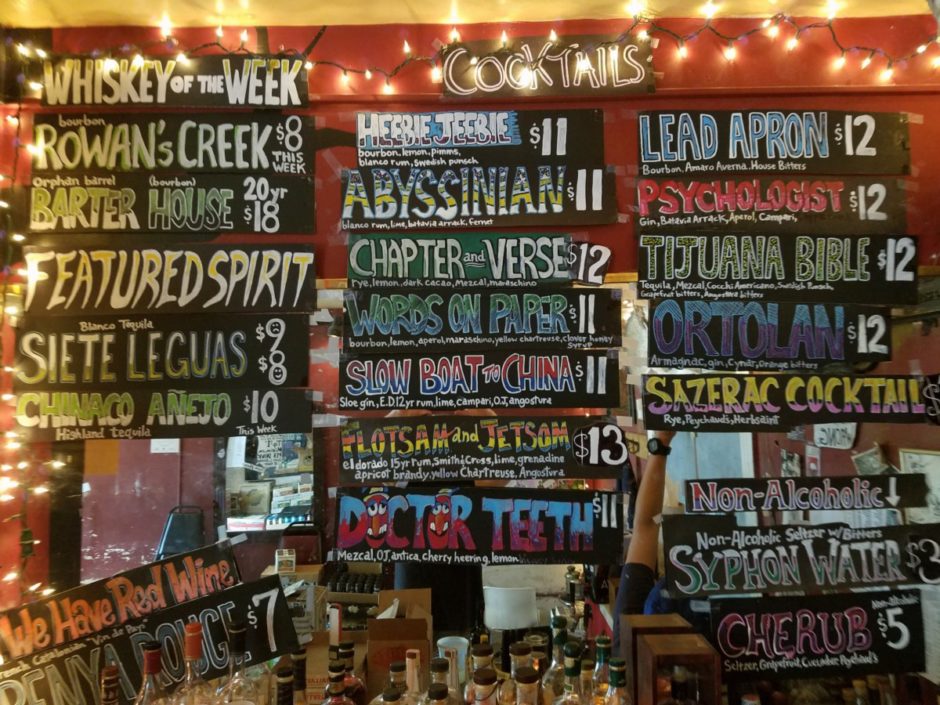 WHISKEY OF THE WEEK
bourbon
ROWAN'S CREEK $8
THIS WEEK
Orphan barrel (bourbon) 20yr
BARTER HOUSE $18
FEATURED SPIRIT
Blanco Tequila
SIETE LEGUAS
CHINACO AÑEJO $10
Highland tequila This Week
We Have Red Wine
"Vin de Pays"
ROUGE $7
COCKTAILS
HEEBIE JEEBIE $11
bourbon, lemon, pimms,
blanco rum, Swedish punsch
ABYSSINIAN $11
blanco rum, lime, batavia arrack, fernet
CHAPTER and VERSE $12
rye, lemon, dark cacao, Mezcal, maraschino
WORDS ON PAPER $11
bourbon, lemon, aperol, maraschino, yellow chartreuse, clover honey
syrup
SLOW BOAT to CHINA $11
Sloe gin, E.D. 12yr rum, lime, campari, OJ, angostura
FLOTSAM and JETSOM $13
el dorado 15yr rum, Smith & Cross, lime, grenadine
apricot brandy, yellow Chartreuse, Angostura
DOCTOR TEETH $11
Mezcal, OJ, antica, cherry heering, lemon
LEAD APRON $12
Bourbon, Amaro Averna, House Bitters
PSYCHOLOGIST $12
Gin, Batavia Arrack, Aperol, Campari,
TIJUANA BIBLE $12
Tequila, Mezcal, Cocchi Americano, Swedish Punsch,
Grapefruit bitters, Angostura bitters
ORTOLAN $12
Armagnac, gin, Cynar, Orange bitters
SAZERAC COCKTAIL $
Rye, Peychauds, Herbsaint
NON-Alcoholic ↓
Non-Alcoholic Seltzer w/Bitters
SYPHON WATER $3
CHERUB Non-Alcoholic $5
Seltzer, Grapefruit, Cucumber, Peychaud's